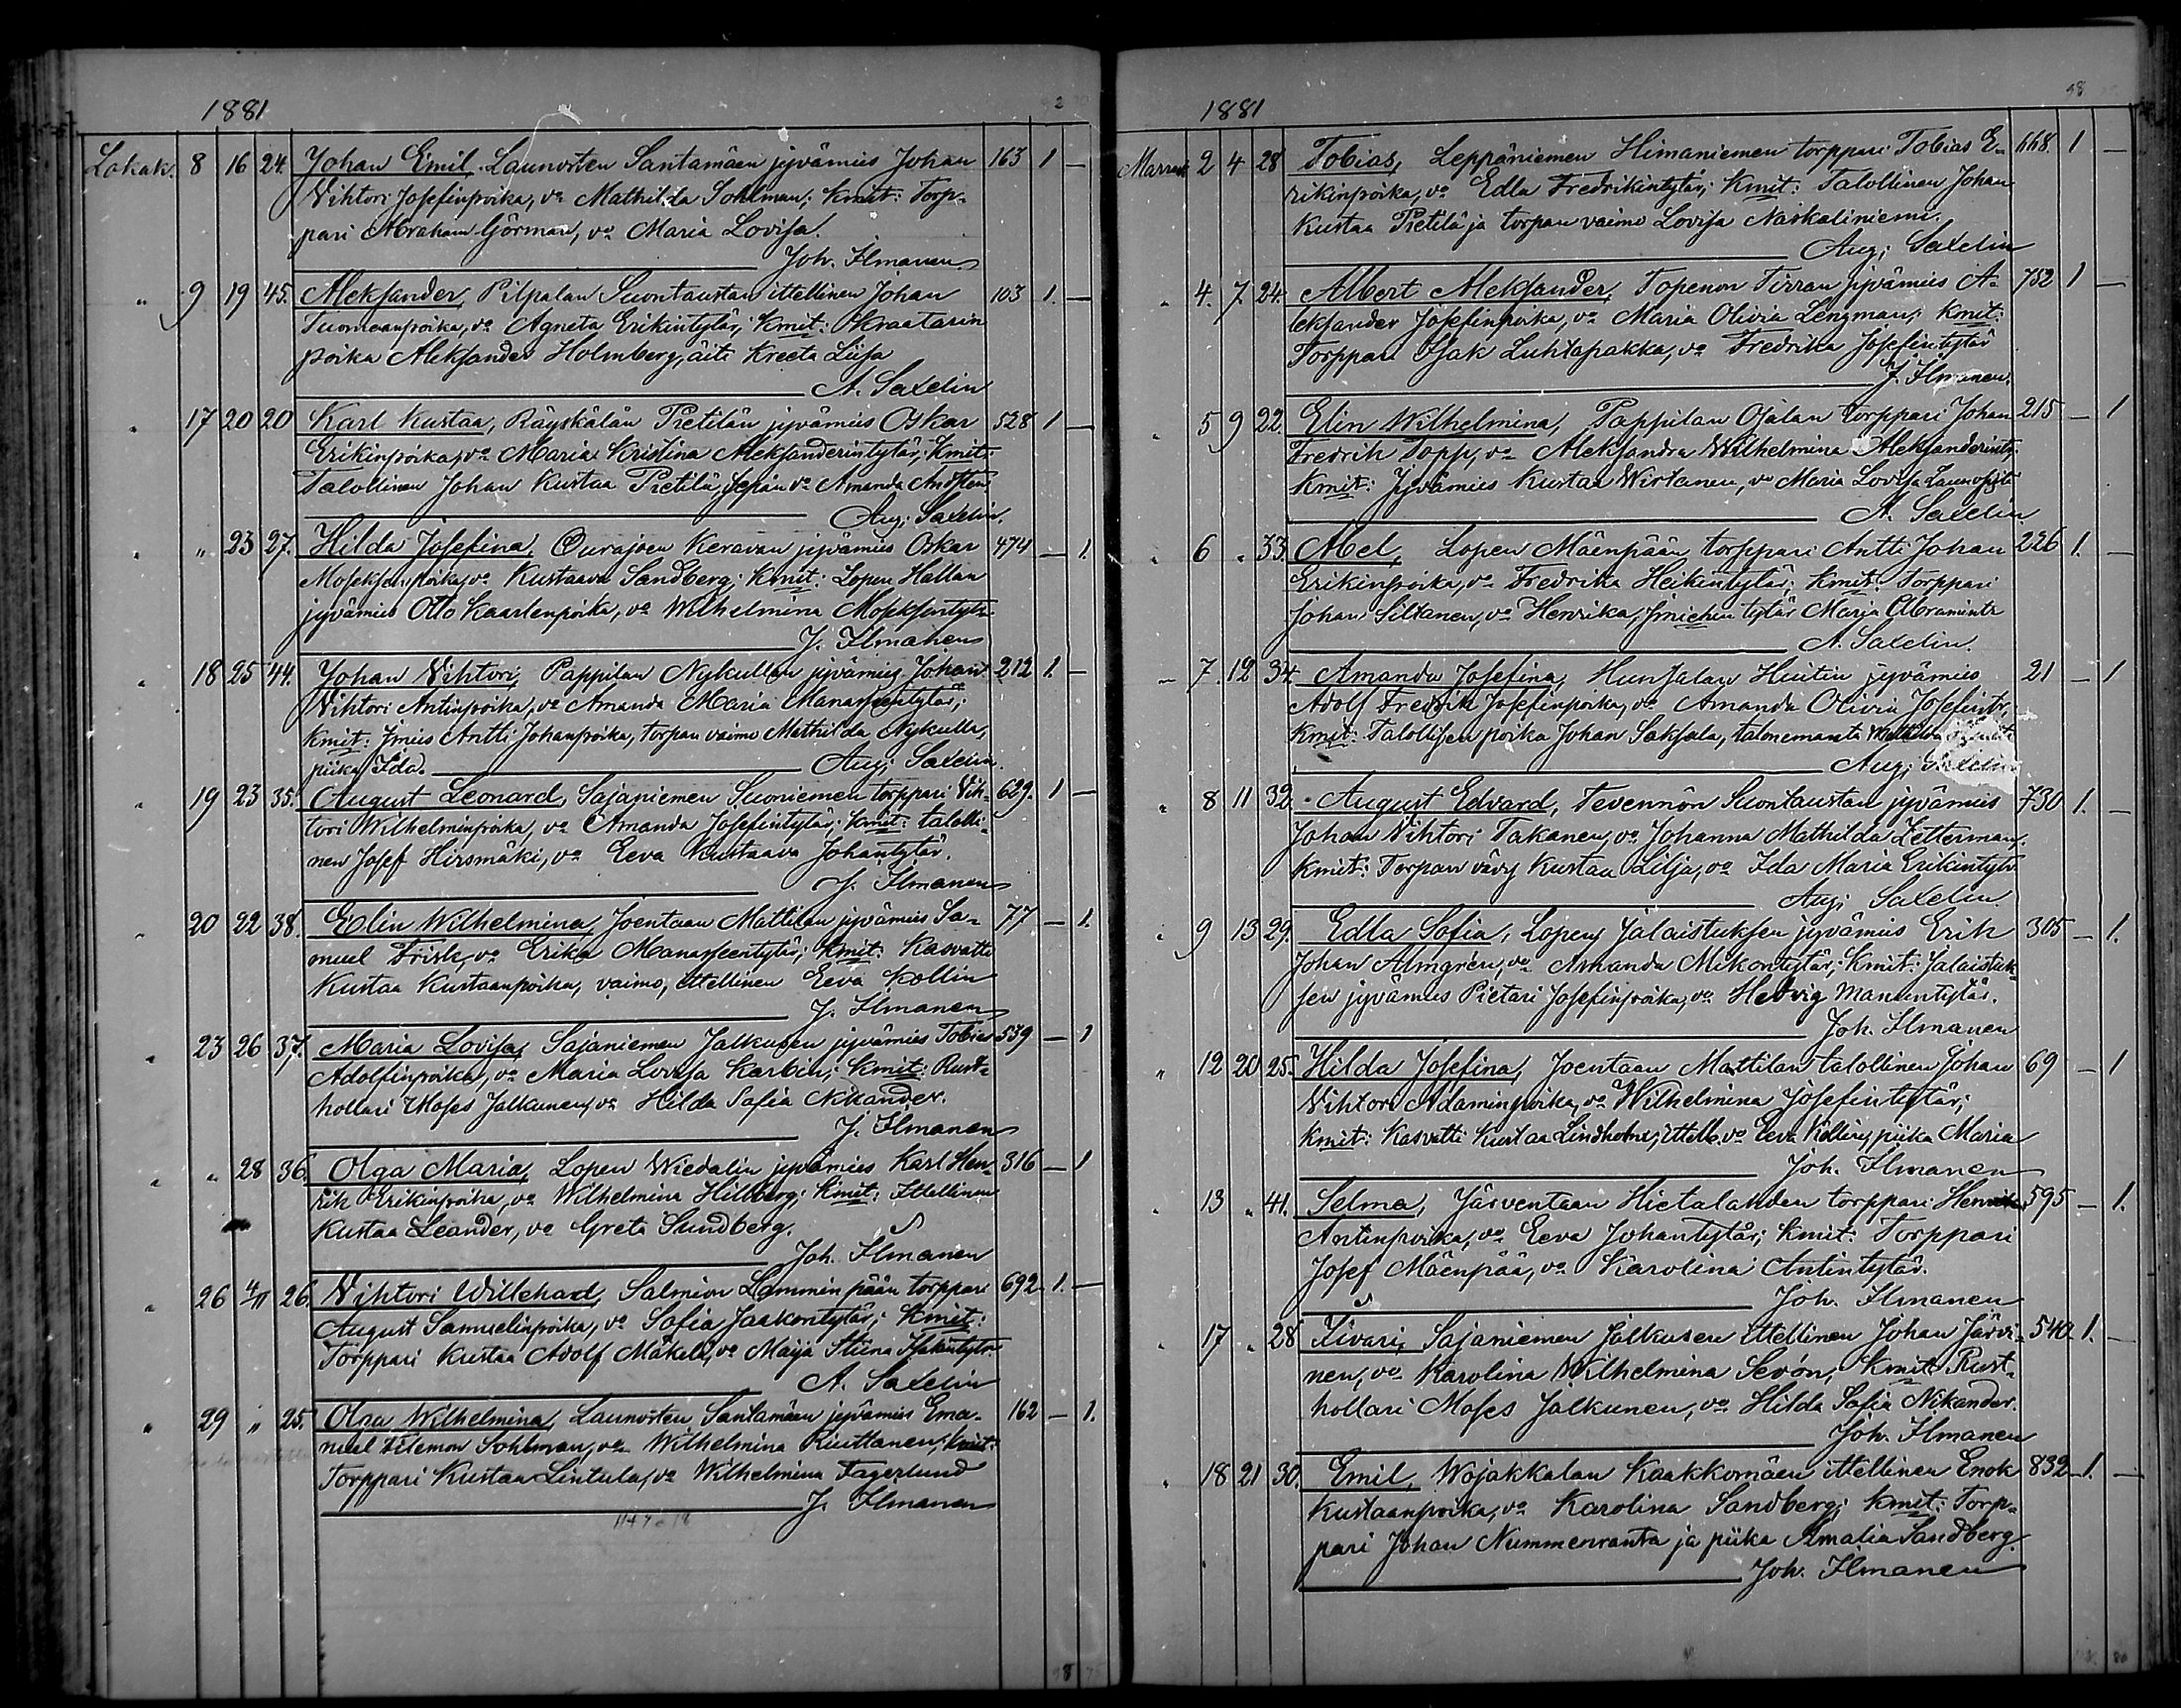 1881
Lokak. 8 16 24. Johan Emil. Launosten Santamäen jyvämies Johan 163 1 —
Vihtori Josefinpoika, vo Mathilda Sohlman; Kmit: Torp-
pari Abraham Görman, vo Maria Lovisa.
Joh. Ilmanen
" 9 19 45. Aleksander, Pilpalan Suontaustan ittellinen Johan 103 1. —
Tuomaanpoika, vo Agneta Erikintytär; Kmit: Kraatarin
poika Aleksander Holmberg, äiti Kreeta Liisa
A. Saxelin
" 17 20 20 Karl Kustaa, Räyskälän Pietilän jyvämies Oskar 528 1 —
Erikinpoika, vo Maria Kristina Aleksanderintytär; Kmit:
Talollinen Johan Kustaa Pietilä, Sepän vo Amanda
Aug: Saxelin.
" " 23 27. Hilda Josefina, Ourajoen Keravan jyvämies Oskar 474 — 1.
poika, vo Kustaava Sandberg; Kmit: Lopen Hallan
jyvämies Otto Kaarlenpoika, vo Wilhelmina
J. Ilmanen
" 18 25 44. Johan Vihtori, Pappilan Nykullan jyvämies Johan 212 1. —
Vihtori Antinpoika, vo Amanda Maria Manassentytär;
Kmit: Jmies Antti Johanpoika, torpan vaimo Mathilda Nykulla,
piika Ida. Aug: Saxelin.
" 19 23 35. August Leonard, Sajaniemen Suoniemen torppari Vih- 629. 1 —
tori Wilhelminpoika, vo Amanda Josefintytär; Kmit: talolli-
nen Josef Hirsmäki, vo Eeva Kustaava Johantytär.
J. Ilmanen
" 20 22 38. Elin Wilhelmina, Joentaan Mattilan jyvämies Sa- 77 — 1.
muel Frisk, vo Erika Manasseentytär; Kmit: Kasvatti
Kustaa Kustaanpoika, vaimo, ittellinen Eeva Kollin
J. Ilmanen
" 23 26 37. Maria Lovisa, Sajaniemen Jalkusen jyvämies Tobias 539 — 1
Adolfinpoika, vo Maria Lovisa Karbin; Kmit: Rust-
hollari Moses Jalkunen, vo Hilda Sofia Nikander.
J. Ilmanen
" " 28 36. Olga Maria, Lopen Wiedalin jyvämies Karl Hen- 316 — 1
rik Erikinpoika, vo Wilhelmina Hillberg; Kmit: Ittellinen
Kustaa Leander, vo Greta Sundberg.
Joh. Ilmanen
" 26 4/11 26. Vihtori Willehad, Salmion Lamminpään torppari 692 1. —
August Samuelinpoika, vo Sofia Jaakontytär; Kmit:
Torppari Kustaa Adolf Mäkelä, vo Maija Stiina
A. Saxelin
" 29 " 25. Olga Wilhelmina, Launosten Santamäen jyvämies Ema- 162 — 1.
nuel Filemon Sohlman, vo Wilhelmina Riuttanen; Kmit:
Torppari Kustaa Lintula, vo Wilhelmina Fagerlund
J. Ilmanen
1881
Marrask. 2 4 28 Tobias, Leppäniemen Himaniemen torppari Tobias E- 668. 1 —
rikinpoika, vo Edla Fredrikintytär; Kmit: Talollinen Johan
Kustaa Pietilä ja torpan vaimo Lovisa Naskaliniemi.
Aug: Saxelin
" 4. 7 24. Albert Aleksander, Topenon Tirran jyvämies A- 752 1 —
leksander Josefinpoika, vo Maria Olivia Lengman; Kmit:
Torppari Isak Luhtapakka, vo Fredrika Josefintytär
J. Ilmanen.
" 5 9 22 Elin Wilhelmina, Pappilan Ojalan torppari Johan 215 — 1
Fredrik Topp, vo Aleksandra Wilhelmina Aleksanderint:
Kmit: Jyvämies Kustaa Wirtanen, vo Maria Lovisa
A. Saxelin
" 6 " 33. Abel, Lopen Mäenpään torppari Antti Johan 226 1. —
Erikinpoika, vo Fredrika Heikintytär; Kmit: Torppari
Johan Siltanen, vo Henrika, Jmiehen tytär Marja Abramintr
A. Saxelin.
" 7. 12 34. Amanda Josefina, Hunsalan Huitin jyvämies 21 — 1
Adolf Fredrik Josefinpoika, vo Amanda Olivia Josefintr.
Kmit: Talollisen poika Johan Saksala, talonemäntä
Aug: Saxelin
" 8 11 32. August Edvard, Tevennön Suontaustan jyvämies 730 1. —
Johan Vihtori Takanen, vo Johanna Mathilda Zetterman,
Kmit: Torpan vävy Kustaa Lilja, vo Ida Maria Erikintytr
Aug: Saxelin
" 9 13 29. Edla Sofia, Lopen Jalaistuksen jyvämies Erik 305 — 1.
Johan Almgrén, vo Amanda Mikontytär; Kmit: Jalaistuk-
sen jyvämies Pietari Josefinpoika, vo Hedvig Manuntytär.
Joh. Ilmanen
" 12 20 25. Hilda Josefina, Joentaan Mattilan talollinen Johan 69 — 1
Vihtori Adaminpoika, vo Wilhelmina Josefintytär;
Kmit: Kasvatti Kustaa Lindholm, ittell. vo Eeva Kollin, piika Maria
Joh. Ilmanen
" 13 " 41. Selma, Järventaan Hietalahden torppari 595 — 1.
Antinpoika, vo Eeva Johantytär; Kmit: Torppari
Josef Mäenpää, vo Karolina Antintytär.
Joh. Ilmanen
" 17 " 28 Iivari, Sajaniemen Jalkusen ittellinen Johan Järvi- 540. 1. —
nen, vo Karolina Wilhelmina Sevón, Kmit: Rust-
hollari Moses Jalkunen, vo Hilda Sofia Nikander.
Joh. Ilmanen
" 18 21 30. Emil, Wojakkalan Kaakkomäen ittellinen Enok 832 1. —
Kustaanpoika, vo Karolina Sandberg; Kmit: Torp-
pari Johan Nummenranta ja piika Amalia Sandberg.
Joh. Ilmanen